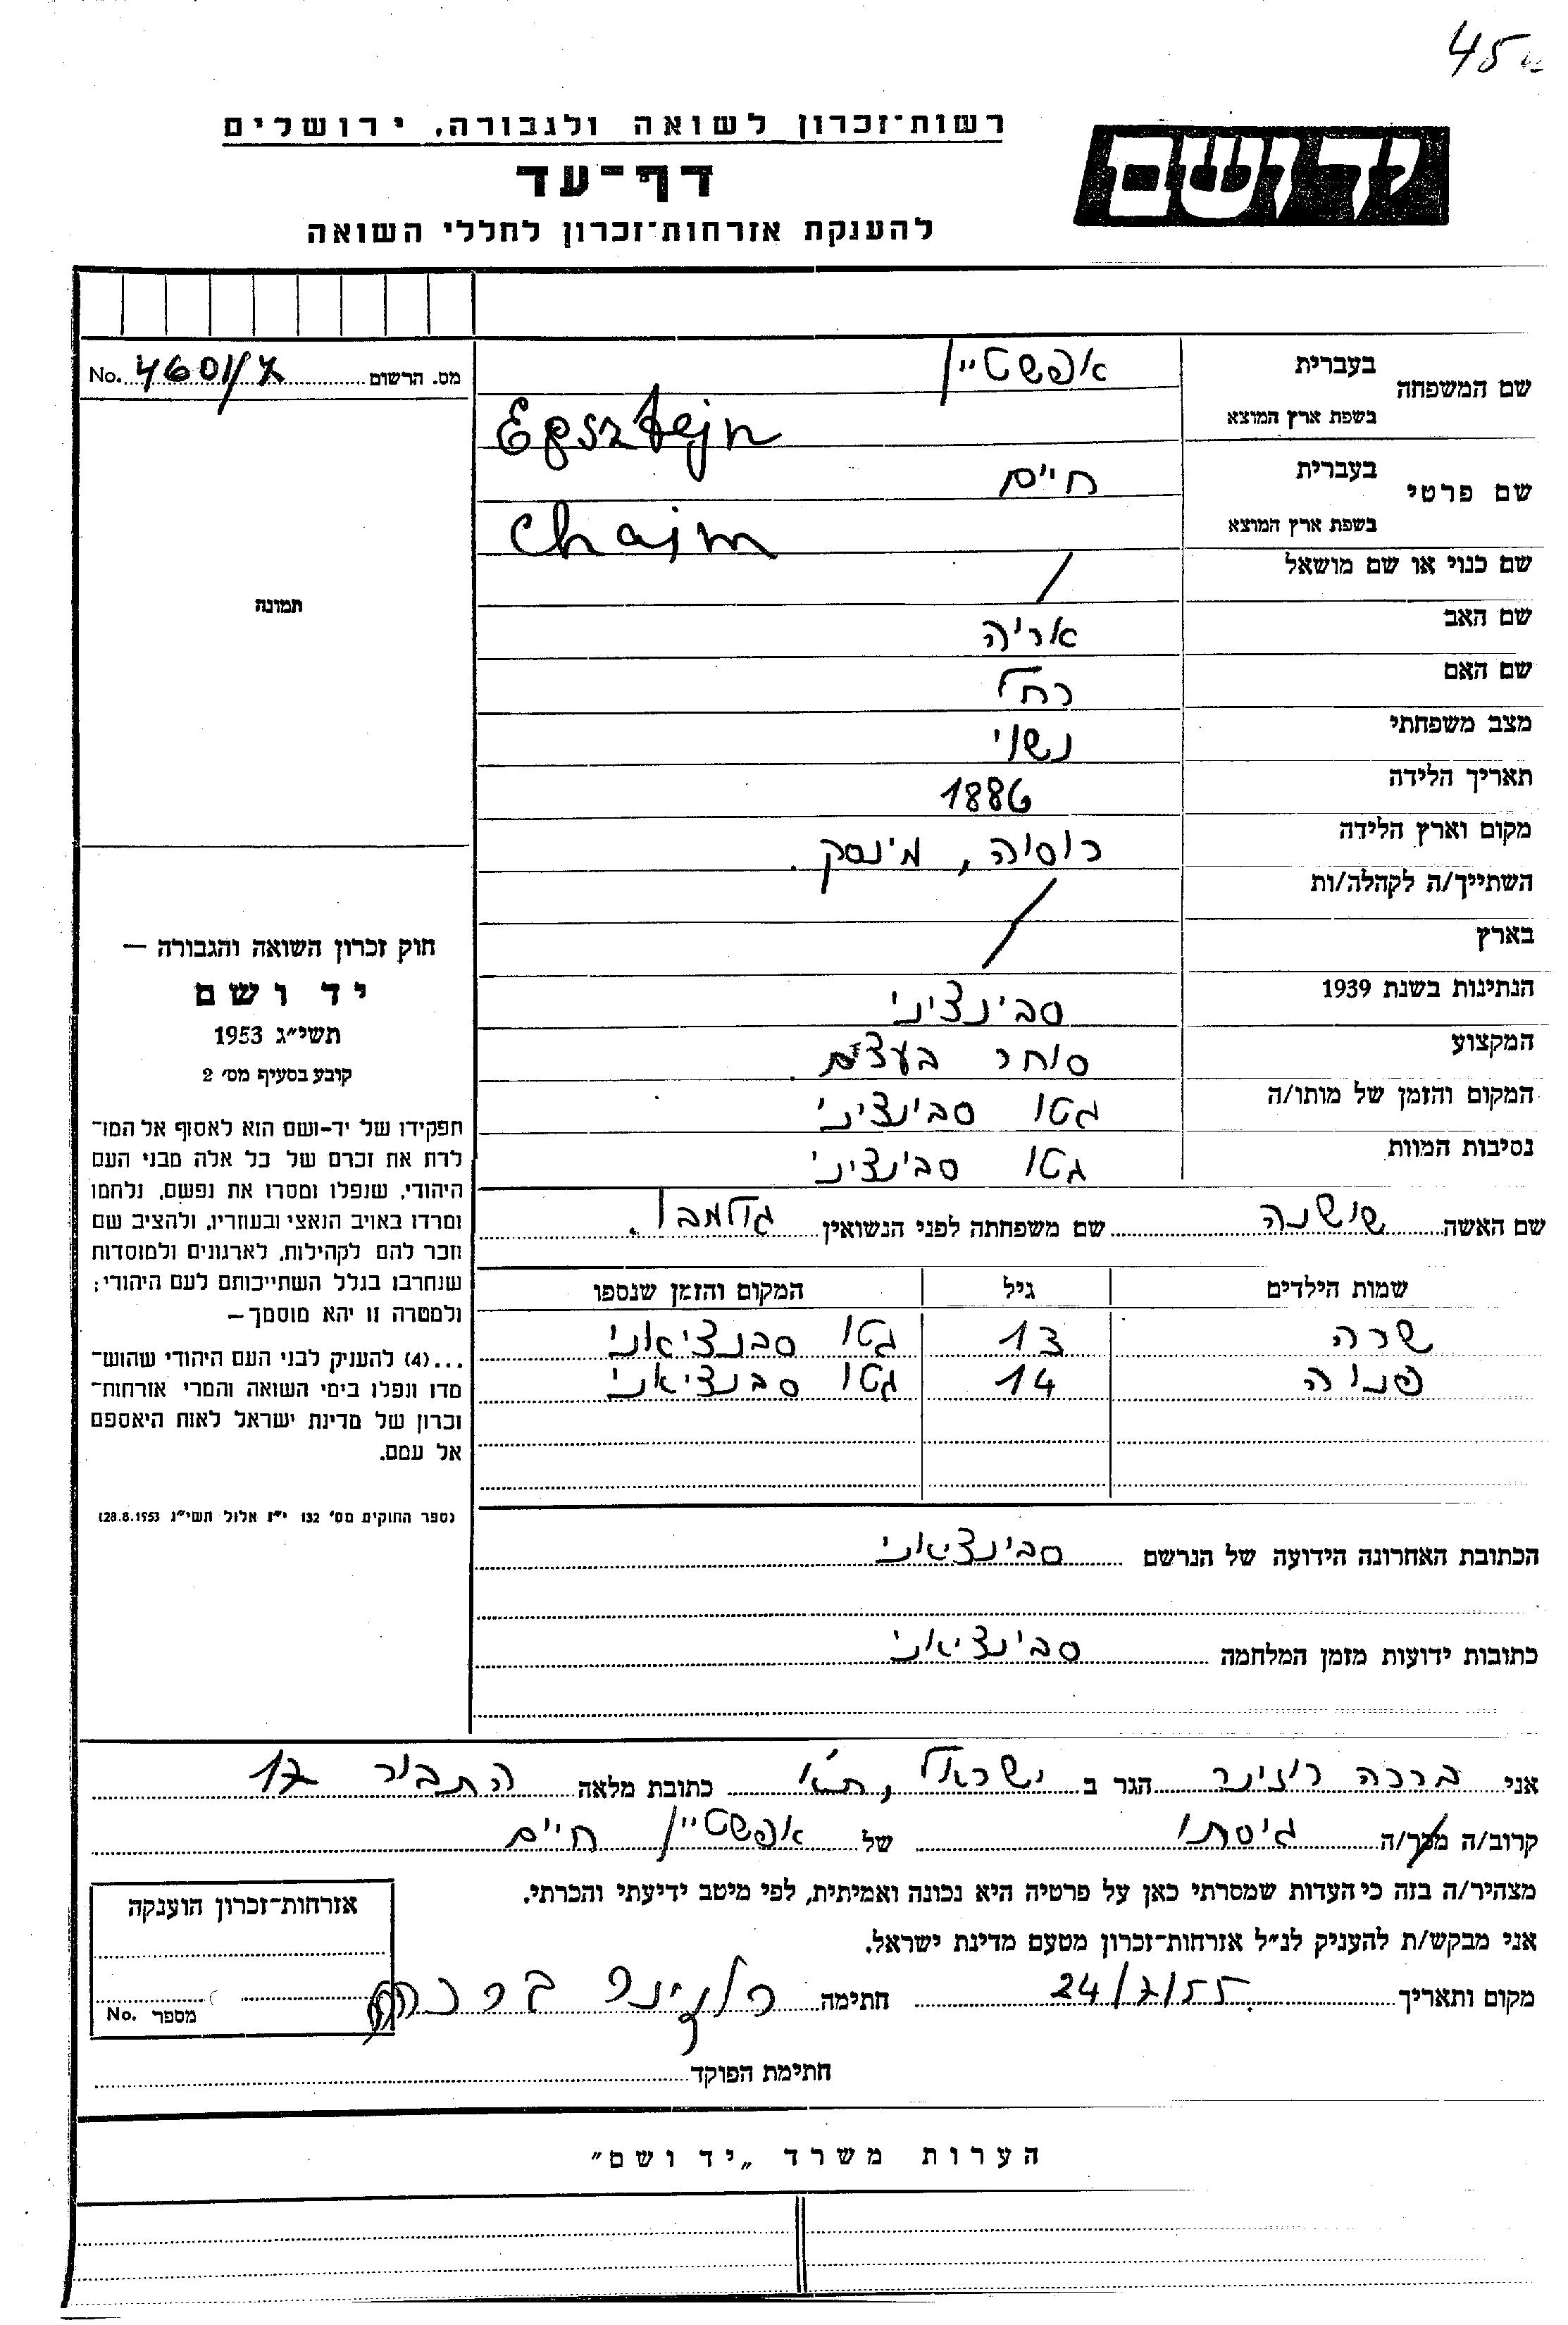 45
רשות־זכרון לשואה ולגבורה, ירושלים
יד ושם
דף־עד
להענקת אזרחות־זכרון לחללי השואה
מס. הרשום 4601/7 No.
שם המשפחה בעברית אפשטיין
בשפת ארץ המוצא Epsztejn
שם פרטי בעברית חיים
בשפת ארץ המוצא Chajm
תמונה
שם כנוי או שם מושאל /
שם האב אריה
שם האם רחל
מצב משפחתי נשוי
תאריך הלידה 1886
מקום וארץ הלידה רוסיה, מינסק.
השתייך/ה לקהלה/ות /
בארץ
הנתינות בשנת 1939 סבינציני
המקצוע סוחר בעצים
המקום והזמן של מותו/ה גטו סבינציני
נסיבות המוות גטו סבינציני
שם האשה שושנה שם משפחתה לפני הנשואין גולמבו.
שמות הילדים גיל המקום והזמן שנספו
שרה 13 גטו סבנציאני
פניה 14 גטו סבנציאני
הכתובת האחרונה הידועה של הנרשם סבינציאני
כתובות ידועות מזמן המלחמה סבינציאני
חוק זכרון השואה והגבורה —
יד ושם
תשי״ג 1953
קובע בסעיף מס׳ 2
תפקידו של יד-ושם הוא לאסוף אל המו־
לדת את זכרם של כל אלה מבני העם
היהודי, שנפלו ומסרו את נפשם, נלחמו
ומרדו באויב הנאצי ובעוזריו, ולהציב שם
וזכר להם לקהילות, לארגונים ולמוסדות
שנחרבו בגלל השתייכותם לעם היהודי;
ולמטרה זו יהא מוסמך—
...(4) להעניק לבני העם היהודי שהוש־
מדו ונפלו בימי השואה והמרי אזרחות־
זכרון של מדינת ישראל לאות היאספם
אל עמם.
(ספר החוקים מס׳ 132 י״ז אלול תשי״ג 28.8.1953)
אני ברכה רוזינר הגר ב ישראל, ת״א כתובת מלאה התבור 17
קרוב/ה מכר/ה גיסתו של אפשטיין חיים
מצהיר/ה בזה כי העדות שמסרתי כאן על פרטיה היא נכונה ואמיתית, לפי מיטב ידיעתי והכרתי.
אני מבקש/ת להעניק לנ״ל אזרחות־זכרון מטעם מדינת ישראל.
מקום ותאריך 24/7/55 חתימה רוזינר ברכה
אזרחות־זכרון הוענקה
מספר No.
חתימת הפוקד
הערות משרד „יד ושם״